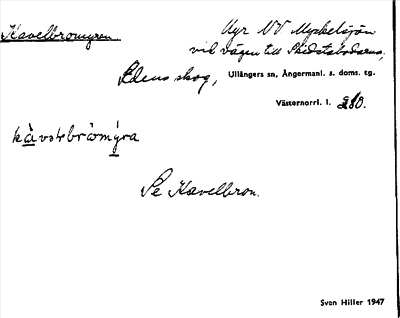 Kavelbromyren
Myr NV Myckelsjön
vid vägen till Skidstabodarna,
Edens skog, Ullångers sn, Ångermanl. s. doms. tg.
Västernorrl. l. 280.
Se Kavelbron.
Sven Hiller 1947